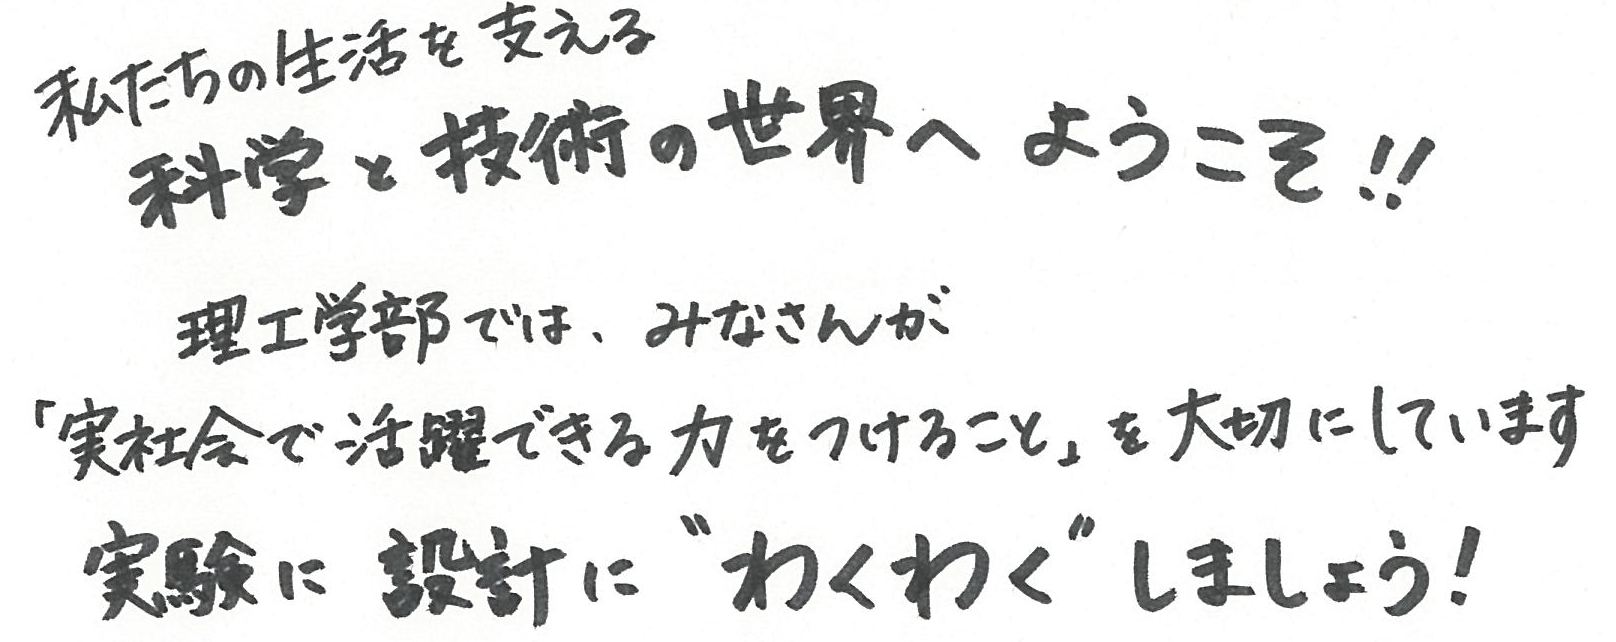 私たちの生活を支える
科学と技術の世界へ ようこそ!!
理工学部では、みなさんが
「実社会で活躍できる力をつけること」を大切にしています
実験に 設計に "わくわく" しましょう!